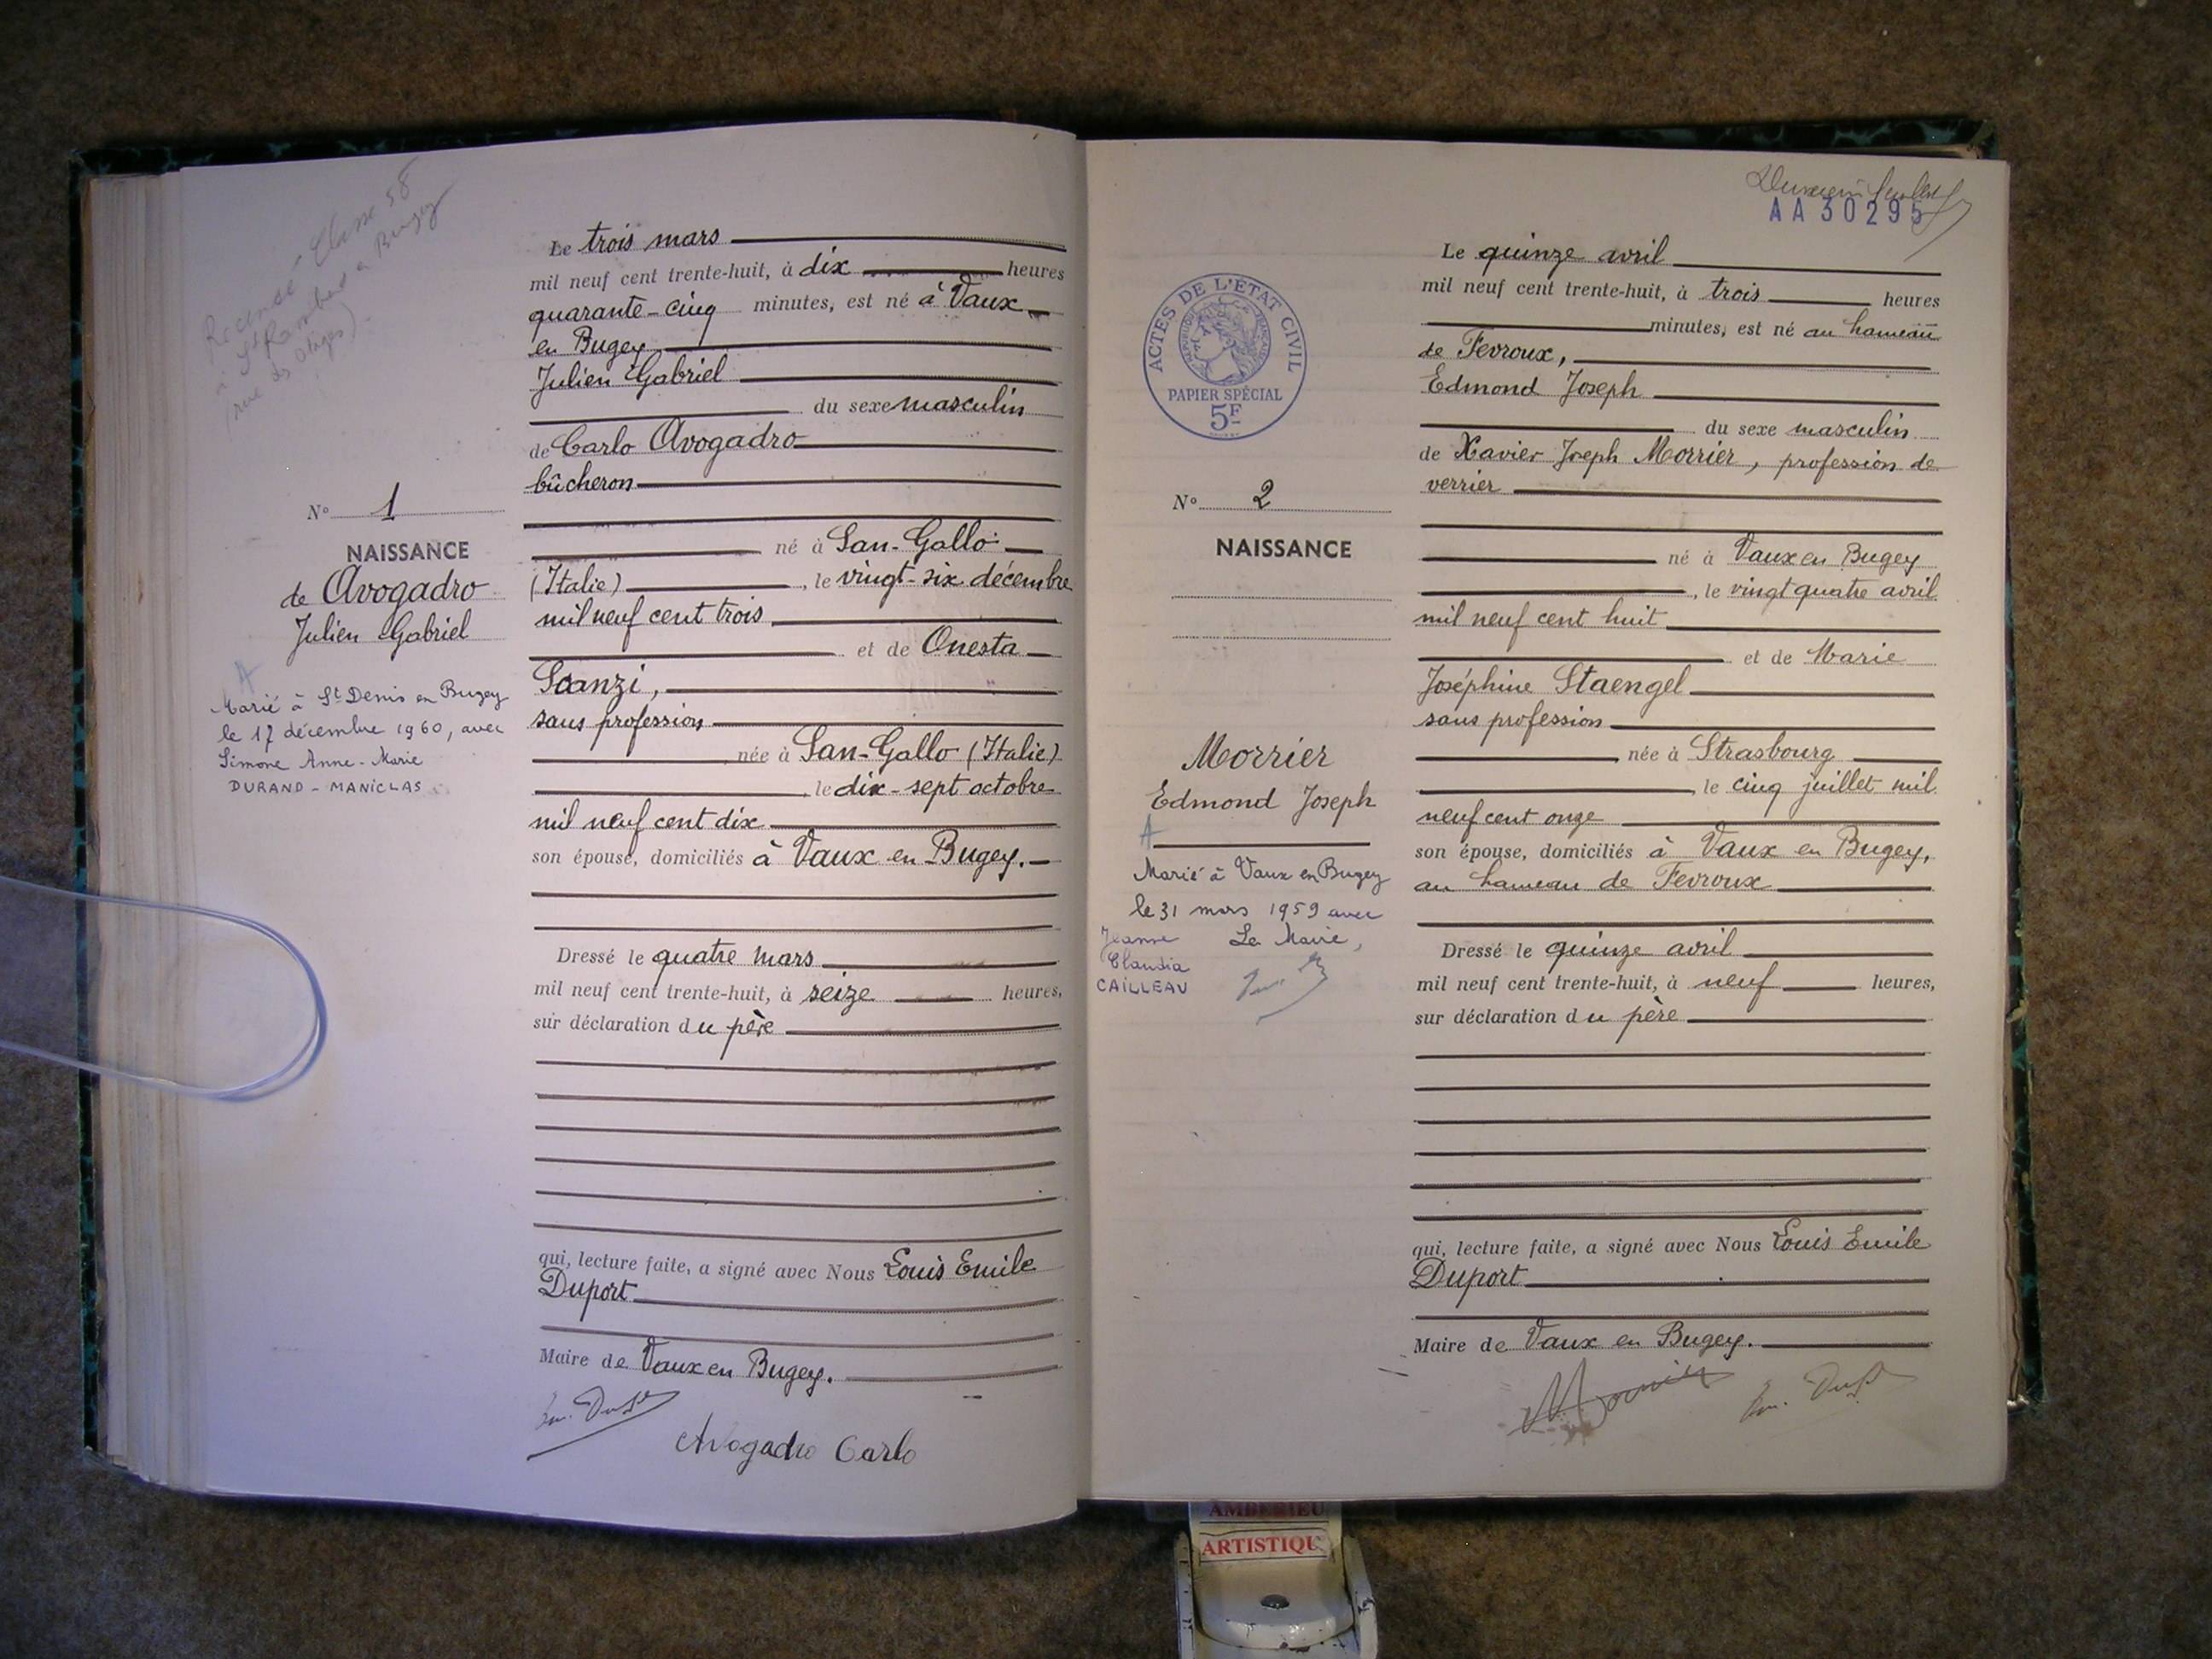 Recensé Classe 58
à St Rambert en Bugey
(rue des Otages)
Le trois mars
mil neuf cent trente-huit, à dix heures
quarante-cinq minutes, est né à Vaux
en Bugey
Julien Gabriel
du sexe masculin
de Carlo Avogadro
bûcheron
né à San-Gallo
(Italie), le vingt-six décembre
mil neuf cent trois
et de Onesta
Scanzi,
sans profession
née à San-Gallo (Italie)
, le dix-sept octobre
mil neuf cent dix
son épouse, domiciliés à Vaux en Bugey.
Dressé le quatre mars
mil neuf cent trente-huit, à seize heures,
sur déclaration du père
qui, lecture faite, a signé avec Nous Louis Emile
Duport
Maire de Vaux en Bugey.
Em. Duport
Avogadro Carlo
N° 1
NAISSANCE
de Avogadro
Julien Gabriel
A
Marié à St Denis en Bugey
le 17 décembre 1960, avec
Simone Anne-Marie
DURAND-MANICLAS
AA 30295
ACTES DE L'ÉTAT CIVIL
RÉPUBLIQUE FRANÇAISE
PAPIER SPÉCIAL
5F
N° 2
NAISSANCE
Morrier
Edmond Joseph
A
Marié à Vaux en Bugey
le 31 mars 1959 avec
Jeanne Le Maire,
Claudia
CAILLEAU
Le quinze avril
mil neuf cent trente-huit, à trois heures
minutes, est né au hameau
de Fevroux,
Edmond Joseph
du sexe masculin
de Xavier Joseph Morrier, profession de
verrier
né à Vaux en Bugey
, le vingt quatre avril
mil neuf cent huit
et de Marie
Joséphine Staengel
sans profession
, née à Strasbourg
, le cinq juillet mil
neuf cent onze
son épouse, domiciliés à Vaux en Bugey,
au hameau de Fevroux
Dressé le quinze avril
mil neuf cent trente-huit, à neuf heures,
sur déclaration du père
qui, lecture faite, a signé avec Nous Louis Emile
Duport
Maire de Vaux en Bugey.
Morrier
Em. Duport
AMBERIEU
ARTISTIQU